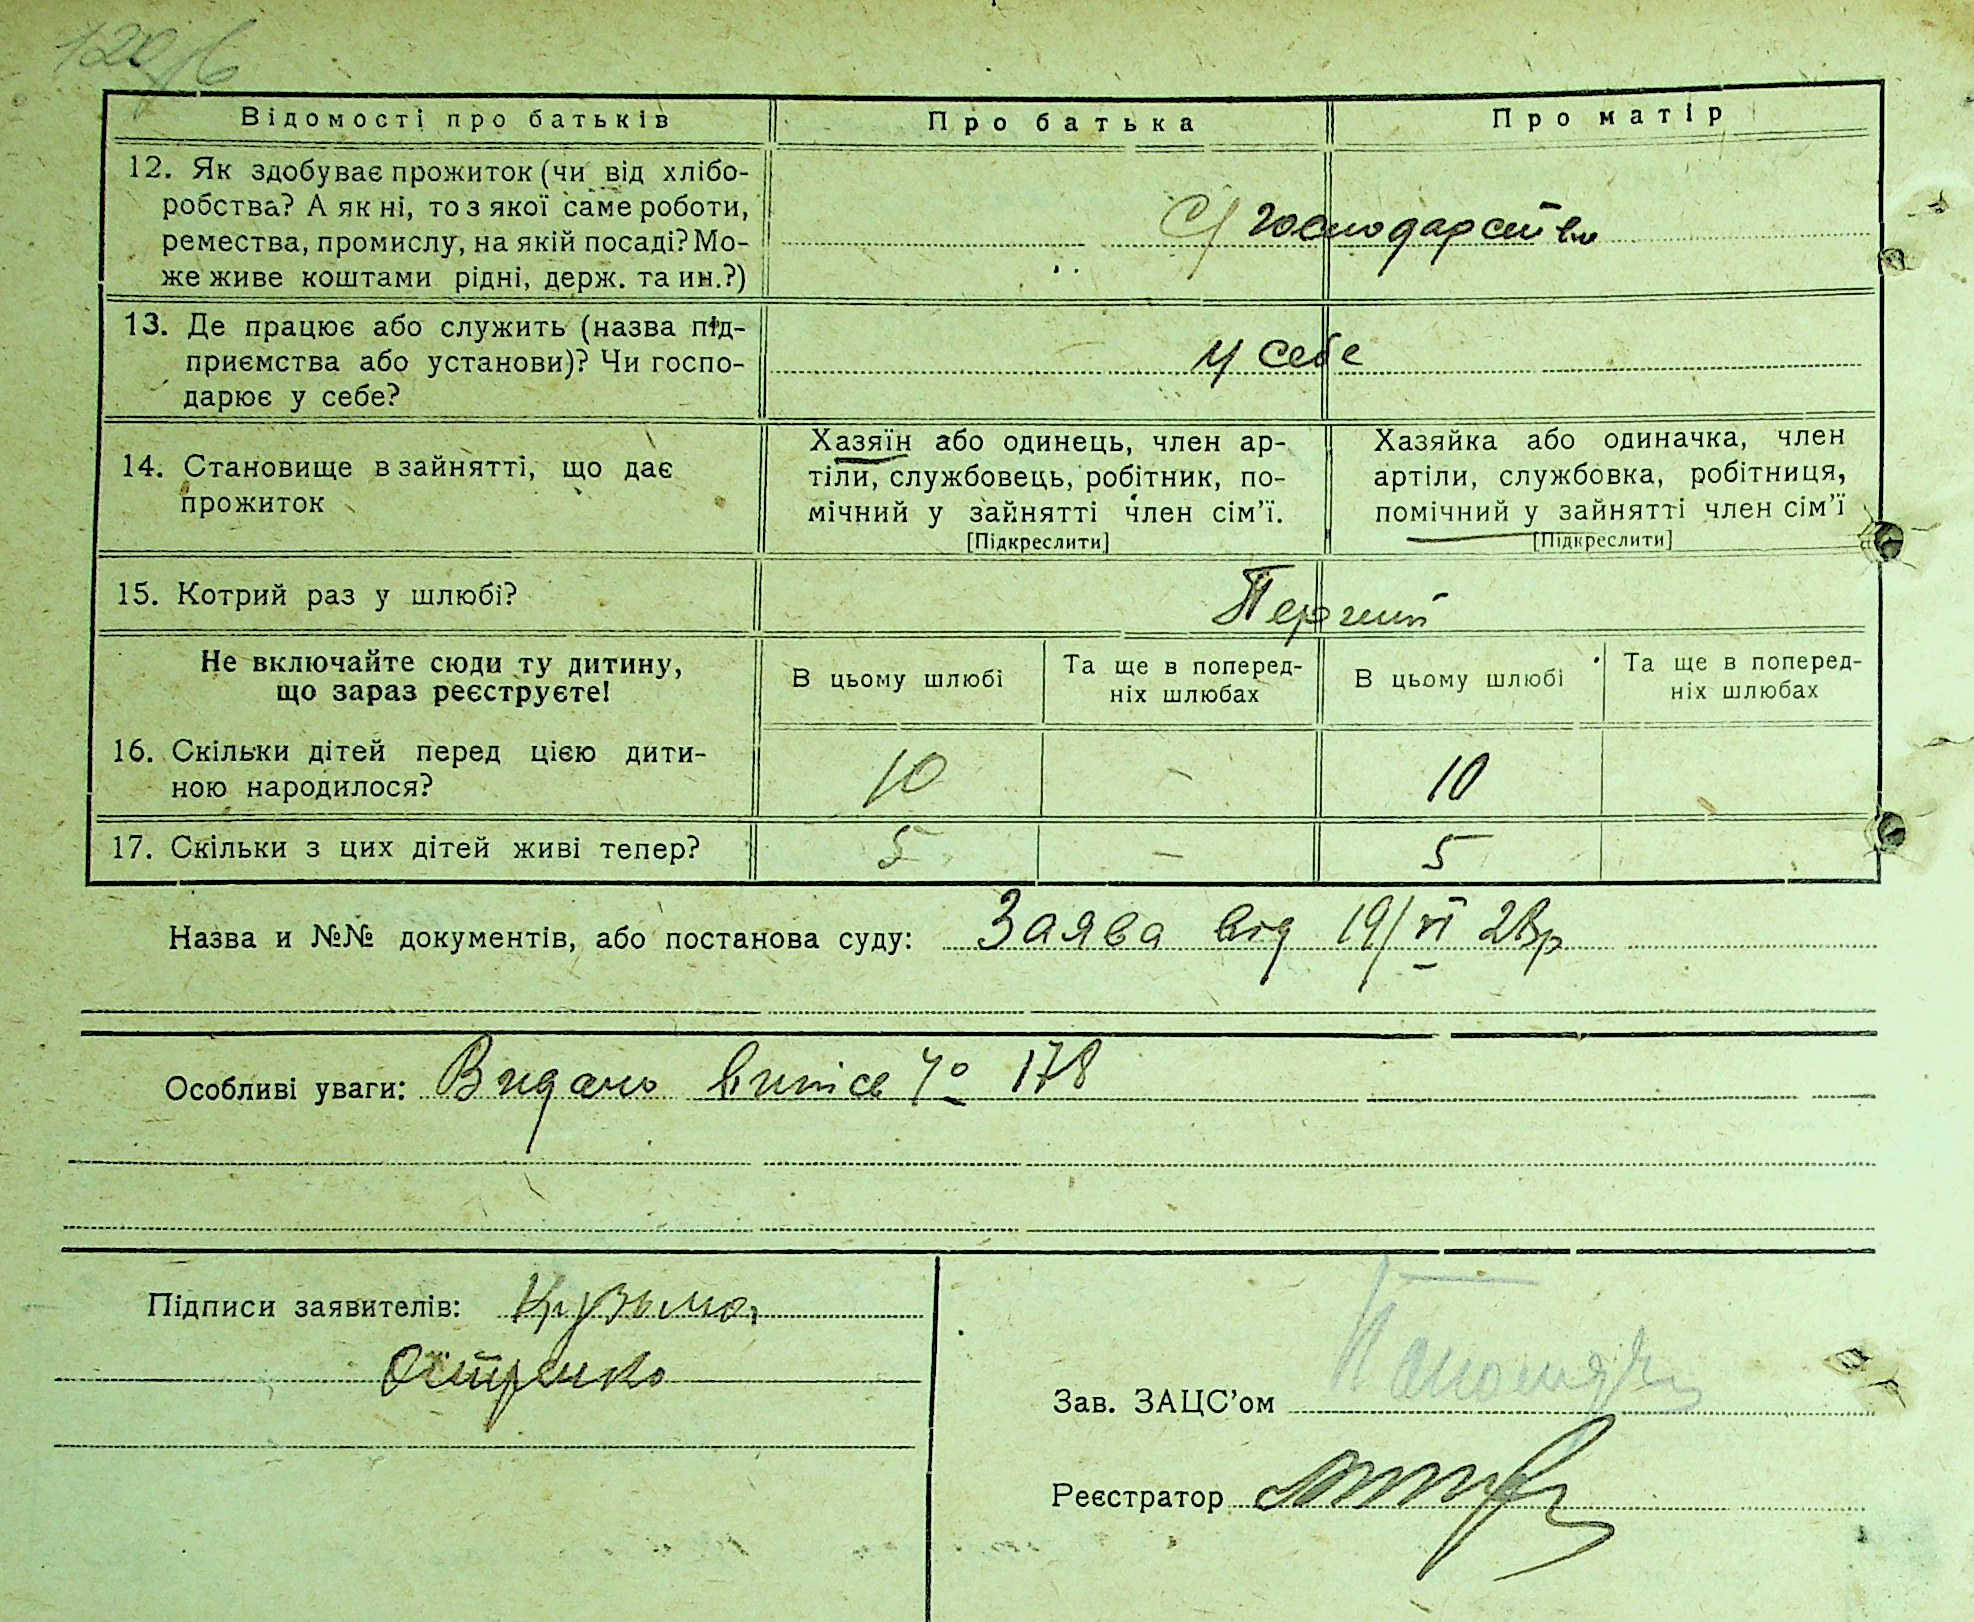 Відомості про батьків Про батька Про матір
12. Як здобуває прожиток (чи від хлібо-
робства? А як ні, то з якої саме роботи,
ремества, промислу, на якій посаді? Мо-
же живе коштами рідні, держ. та ин.?)
С/ господарство
13. Де працює або служить (назва під-
приємства або установи)? Чи госпо-
дарює у себе?
у себе
14. Становище в зайнятті, що дає
прожиток
Хазяїн або одинець, член ар-
тіли, службовець, робітник, по-
мічний у зайнятті член сім’ї.
[Підкреслити]
Хазяйка або одиначка, член
артіли, службовка, робітниця,
помічний у зайнятті член сім’ї
[Підкреслити]
15. Котрий раз у шлюбі?
Перший
Не включайте сюди ту дитину,
що зараз реєструєте!
В цьому шлюбі
Та ще в поперед-
ніх шлюбах
В цьому шлюбі
Та ще в поперед-
ніх шлюбах
16. Скільки дітей перед цією дити-
ною народилося?
10 – 10
17. Скільки з цих дітей живі тепер? 5 – 5
Назва и №№ документів, або постанова суду: Заява від 19/VI 28р
Особливі уваги: Видано витіс № 178
Підписи заявителів: Кузьма
Зав. ЗАЦС’ом
Реєстратор